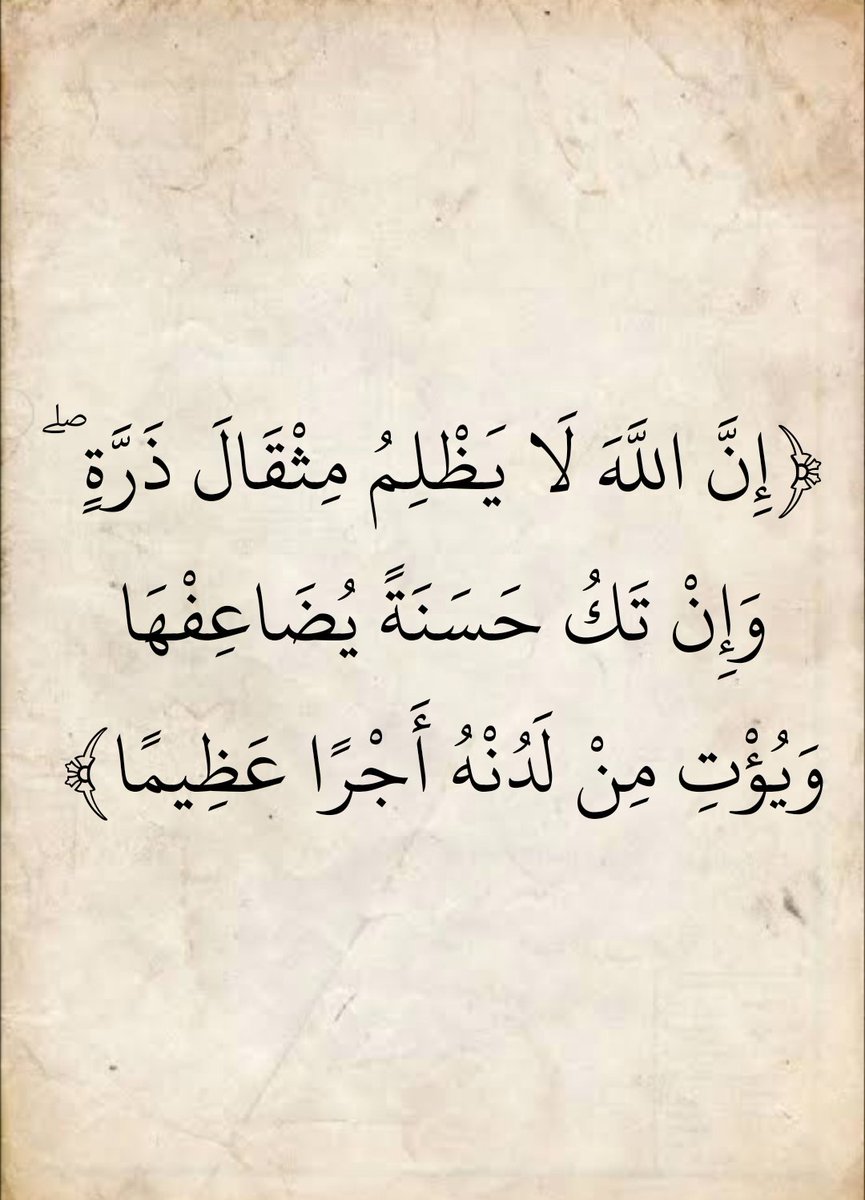 ﴿إِنَّ اللَّهَ لَا يَظْلِمُ مِثْقَالَ ذَرَّةٍ ۖ
وَإِنْ تَكُ حَسَنَةً يُضَاعِفْهَا
وَيُؤْتِ مِنْ لَدُنْهُ أَجْرًا عَظِيمًا﴾